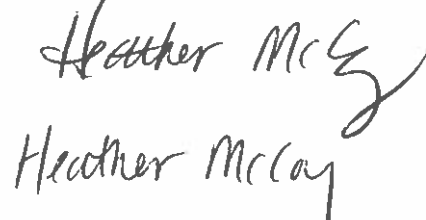 Heather McCoy
Heather McCoy